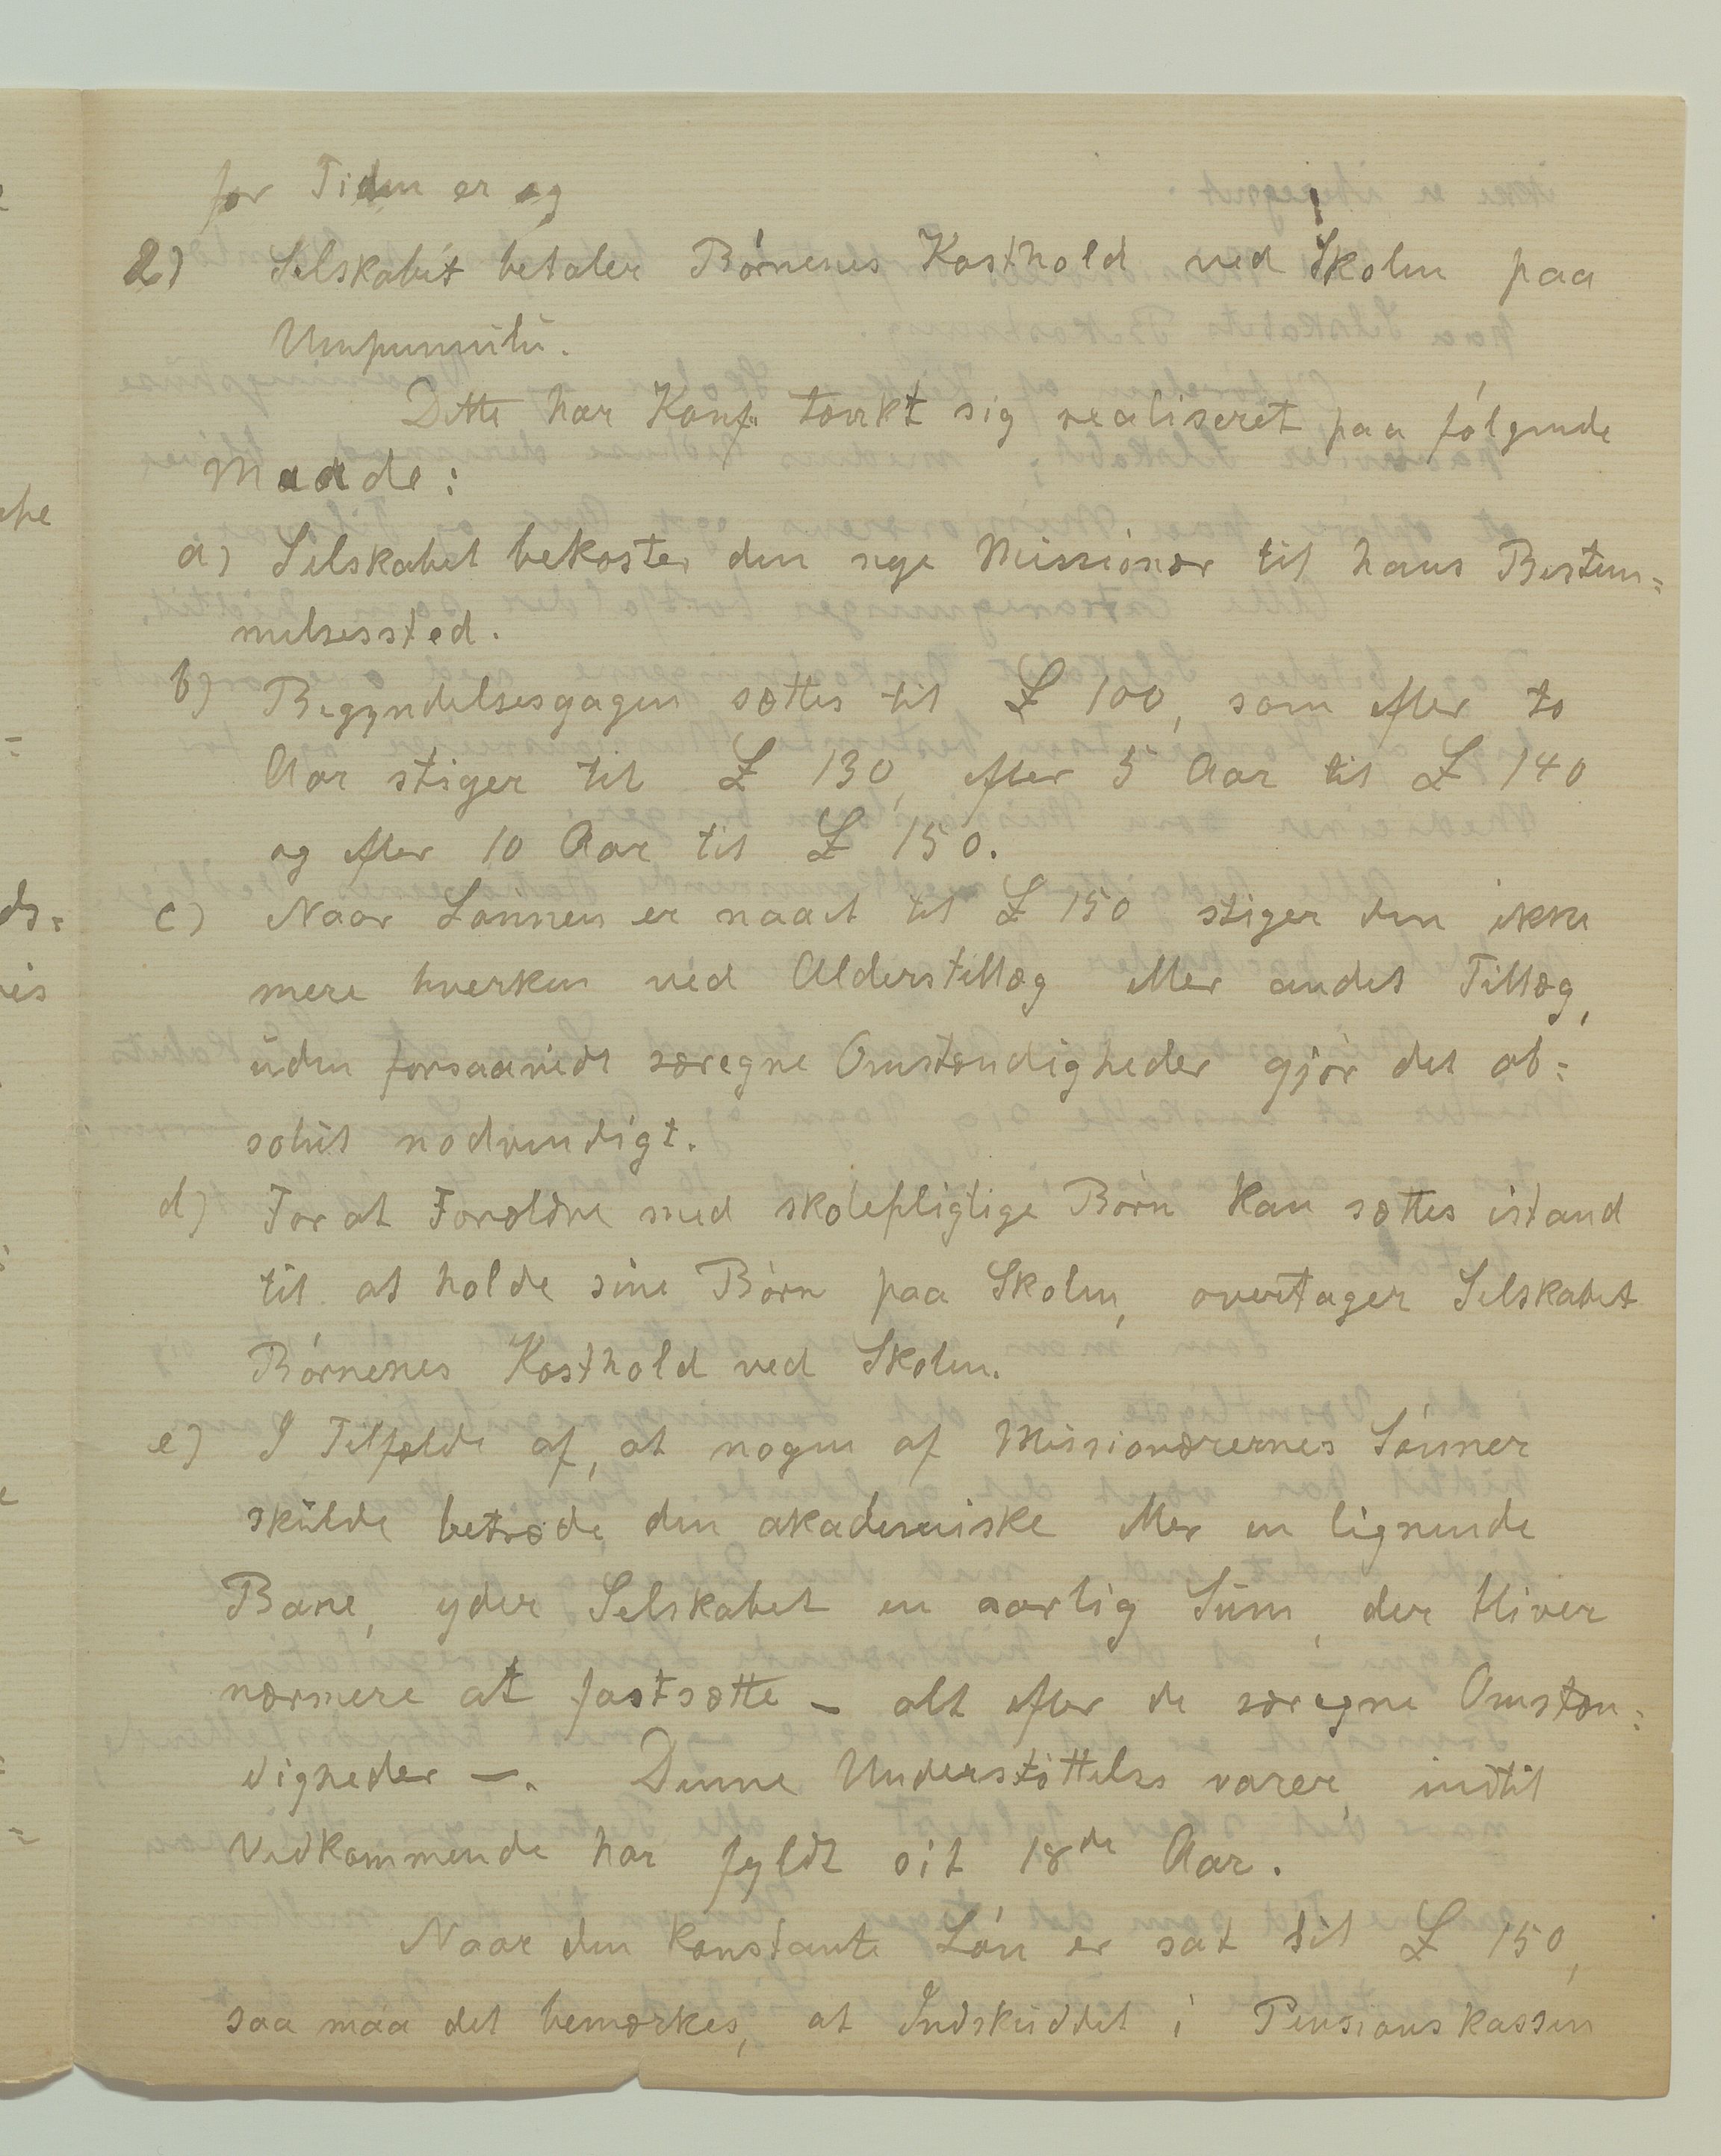 for Tiden er og
2) Selskabet betaler Börnenes Kosthold ved Skolen paa
Umpumulu.
Dette har Konf. tænkt sig realiseret paa fölgende
Maade:
a) Selskabet bekoster den nye Missionær til hans Bestem=
melsessted.
b) Begyndelsesgagen sættes til £ 100, som efter to
Aar stiger til £ 130, efter 5 Aar til £ 140
og efter 10 Aar til £ 150.
c) Naar Lønnen er naaet til £ 150 stiger den ikke
mere hverken ved Alderstillæg eller andet Tillæg,
uden forsaavidt særegne Omstændigheder gjör det ab=
solut nødvendigt.
d) For at Forældre med skolepligtige Börn kan sættes istand
til at holde sine Börn paa Skolen, overtager Selskabet
Börnenes Kosthold ved Skolen.
e) I Tilfælde af, at nogen af Missionærernes Sönner
skulde betræde den akademiske eller en lignende
Bane, yder Selskabet en aarlig Sum, der bliver
nærmere at fastsætte – alt efter de særegne Omstæn=
digheder –. Denne Understöttelse varer, indtil
Vedkommende har fyldt sit 18de Aar.
Naar den konstante Lön er sat til £ 150,
saa maa det bemærkes, at Indskuddet i Pensionskassen